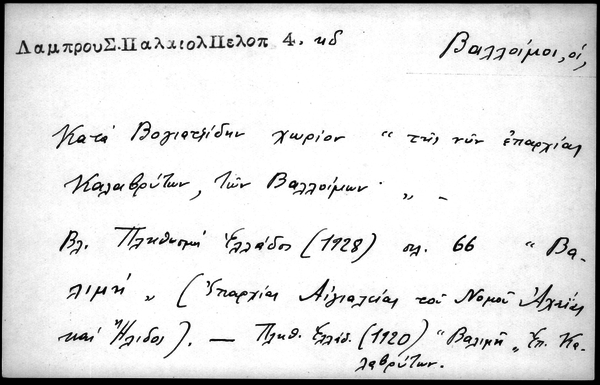 ΛαμπρουΣ.ΠαλαιολΠελοπ 4. κδ
Βαλλοίμοι, οἱ,
Κατὰ Βογιατζίδην χωρίον “ τῆς νῦν ἐπαρχίας
Καλαβρύτων, τῶν Βαλλοίμων „ -
Βλ. Πληθυσμὸ Ἑλλάδος (1928) σελ. 66 “ Βα-
λιμή „ (Ἐπαρχίας Αἰγιαλείας τοῦ Νομοῦ Ἀχαΐας
καὶ Ἤλιδος). — Πληθ. Ἑλλάδ. (1920) “Βαλιμῆ„ Ἐπ. Κα-
λαβρύτων.